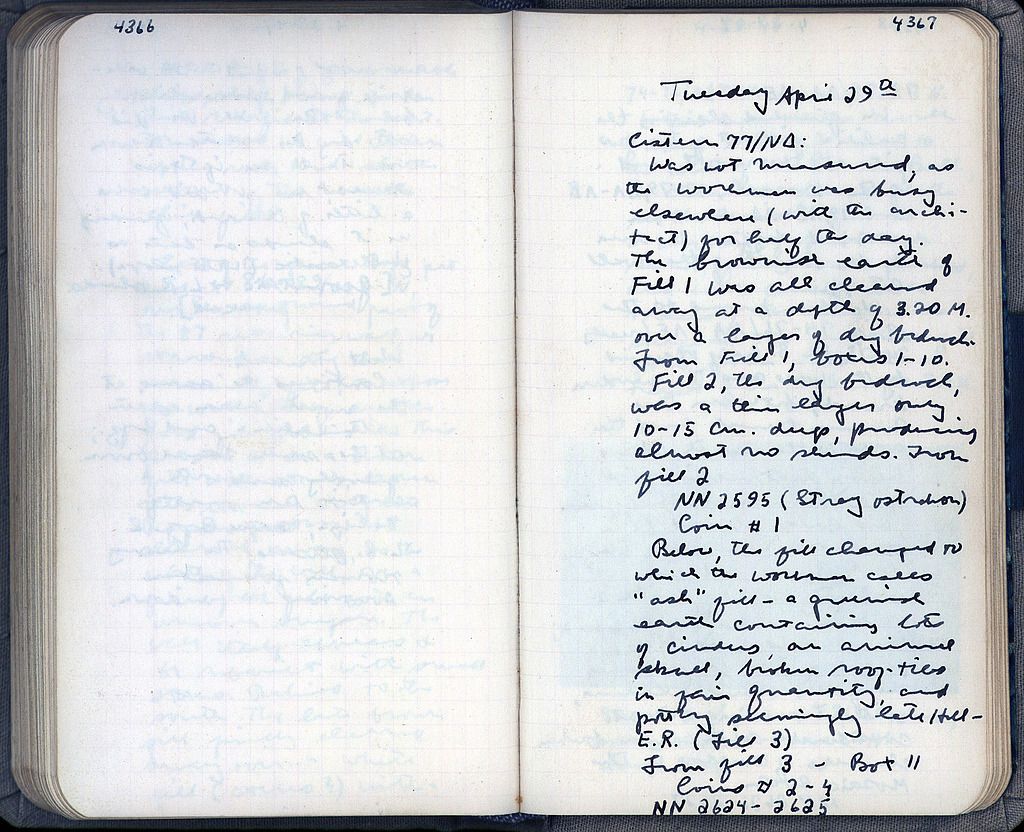 4366
4367
Tuesday April 29th
Cistern 77/NΔ:
Was not measured, as
the workman was busy
elsewhere (with the archi-
tect) for half the day.
The brownish earth of
Fill 1 was all cleared
away at a depth of 3.20 M.
over a layer of dug bedrock.
From Fill 1, boxes 1-10.
Fill 2, the dug bedrock,
was a thin layer only
10-15 cm. deep, producing
almost no sherds. From
fill 2
NN 2595 (Stray ostrakon)
Coin # 1
Below, the fill changed to
which the workman calls
"ash" fill - a greenish
earth containing lots
of cinders, an animal
skull, broken roof-tiles
in fair quantity and
pottery seemingly late Hell-
E.R. (Fill 3)
From fill 3 - Box 11
Coins # 2-4
NN 2624-2625